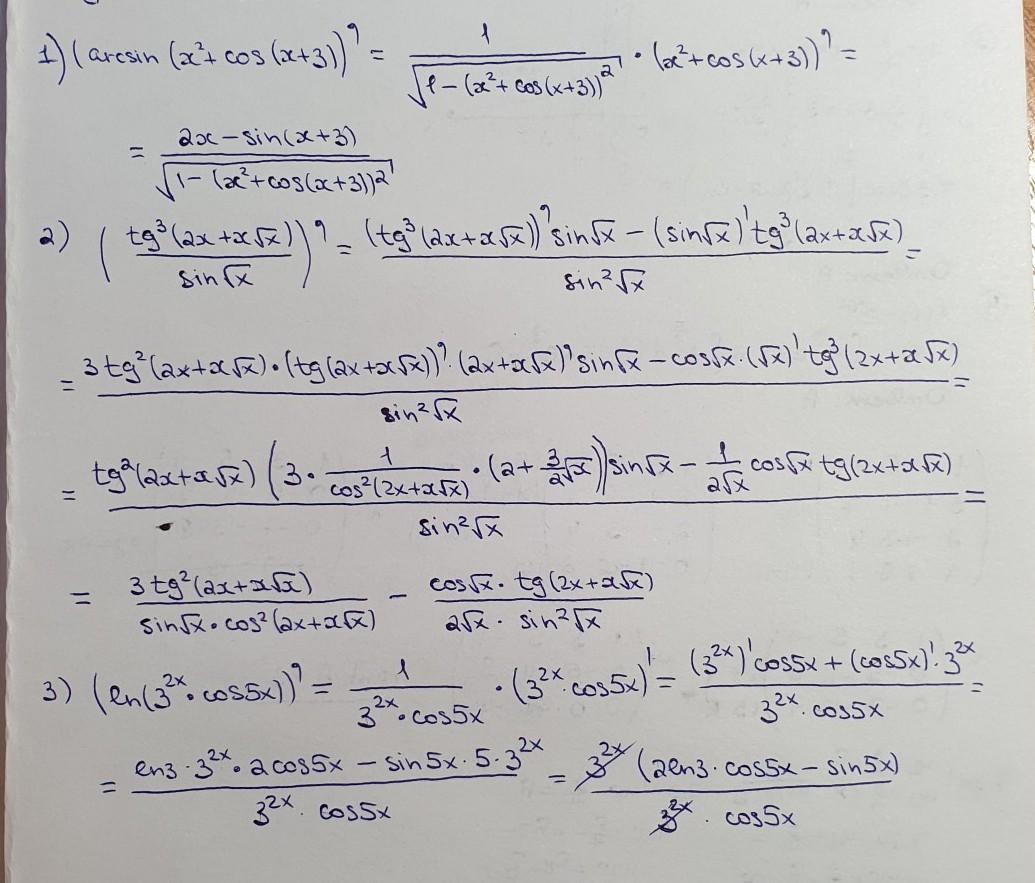 1) (arcsin (x²+ cos (x+3))' = 1/√(1-(x²+ cos(x+3))²) · (x²+cos(x+3))' =
= (2x-sin(x+3))/√(1-(x²+cos(x+3))²)
2) (tg³(2x+x√x))/sin√x)' = ((tg³(2x+x√x))' sin√x - (sin√x)' tg³(2x+x√x))/sin²√x =
= (3tg²(2x+x√x)·(tg(2x+x√x))'·(2x+x√x)' sin√x - cos√x·(√x)' tg³(2x+x√x))/sin²√x =
= (tg²(2x+x√x) (3·1/cos²(2x+x√x)·(2+3/2√x)) sin√x - 1/(2√x) cos√x tg(2x+x√x))/sin²√x =
= 3tg²(2x+x√x)/(sin√x·cos²(2x+x√x)) - cos√x·tg(2x+x√x)/(2√x·sin²√x)
3) (ln(3²ˣ·cos5x))' = 1/(3²ˣ·cos5x) · (3²ˣ·cos5x)' = ((3²ˣ)'cos5x + (cos5x)'·3²ˣ)/(3²ˣ·cos5x) =
= (ln3·3²ˣ·2cos5x - sin5x·5·3²ˣ)/(3²ˣ·cos5x) = 3²ˣ(2ln3·cos5x - sin5x)/(3²ˣ·cos5x)